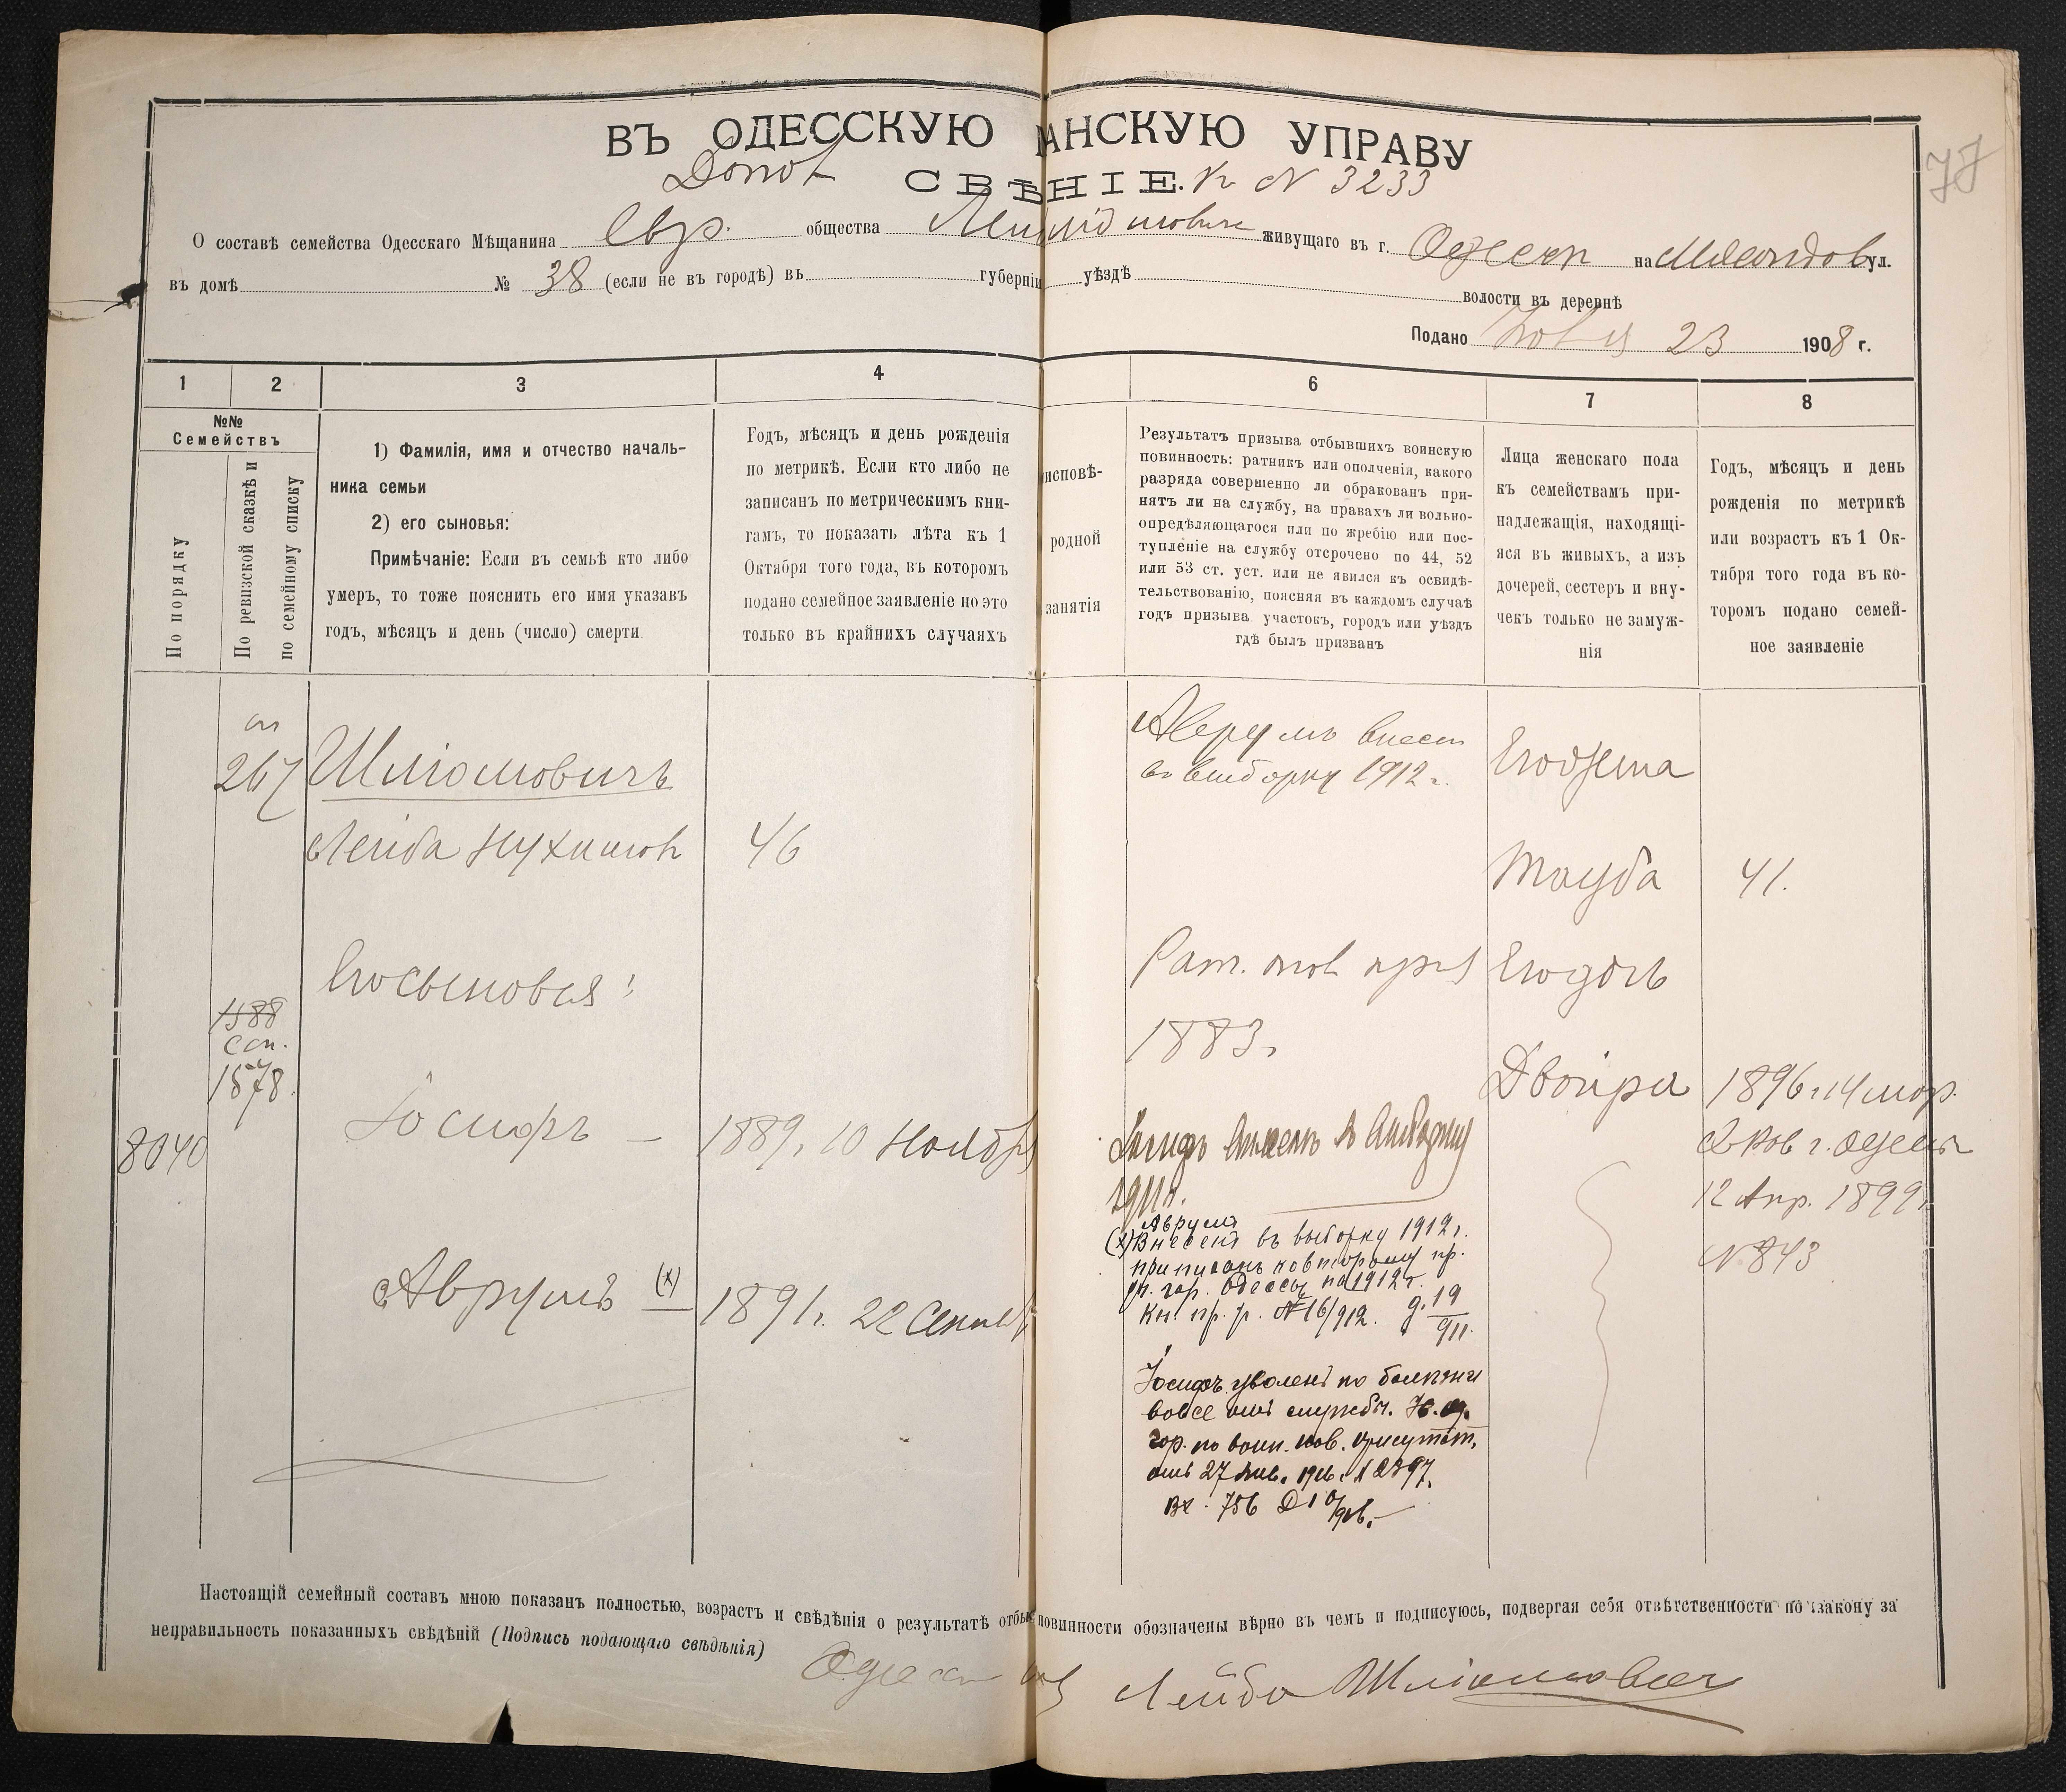 77
ВЪ ОДЕССКУЮ АНСКУЮ УПРАВУ
СВѢНІЕ. к N 3233
О составѣ семейства Одесскаго Мѣщанина Евр. общества живущаго въ г. на ул.
въ домѣ № 38 (если не въ городѣ) въ губерніи уѣздѣ волости въ деревнѣ
Подано 23 1908 г.
1 2 3 4 6 7 8
№№
Семействъ
По порядку
По ревизской сказкѣ и
по семейному списку
1) Фамилія, имя и отчество началь-
ника семьи
2) его сыновья:
Примѣчаніе: Если въ семьѣ кто либо
умеръ, то тоже пояснить его имя указавъ
годъ, мѣсяцъ и день (число) смерти
Годъ, мѣсяцъ и день рожденія
по метрикѣ. Если кто либо не
записанъ по метрическимъ кни-
гамъ, то показать лѣта къ 1
Октября того года, въ которомъ
подано семейное заявленіе но это
только въ крайнихъ случаяхъ
исповѣ-
родной
занятія
Результатъ призыва отбывшихъ воинскую
повинность: ратникъ или ополченія, какого
разряда совершенно ли обракованъ при-
нятъ ли на службу, на правахъ ли вольно-
опредѣляющагося или по жребію или пос-
тупленіе на службу отсрочено по 44, 52
или 53 ст. уст. или не явился къ освидѣ-
тельствованію, поясняя въ каждомъ случаѣ
годъ призыва участокъ, городъ или уѣздъ
гдѣ былъ призванъ
Лица женскаго пола
къ семействамъ при-
надлежащія, находящі-
яся въ живыхъ, а изъ
дочерей, сестеръ и вну-
чекъ только не замуж-
нія
Годъ, мѣсяцъ и день
рожденія по метрикѣ
или возрастъ къ 1 Ок-
тября того года въ ко-
торомъ подано семей-
ное заявленіе
267
Шліомовичъ
Лейба Нухимов 46
Его сыновья:
1588
сп.
1578.
8040
Іосифъ – 1889 г. 10 Ноябр
Аврумъ (х) 1891 г. 22 Сентяб
Аврумъ внесен
въ выборку 1912 г.
Рат. опол
1883 г.
Іосифъ внесенъ в выборку
1911 г.
Аврумъ
(х) Внесенъ въ выборку 1912 г.
приписанъ ко второму пр.
уч. гор. Одессы на 1912 г.
Кн. пр. р. № 16/912. д. 19/911.
Іосифъ уволенъ по болѣзни
вовсе отъ службы.
гор. по воин. пов. присутств.
отъ 27 Янв.
вх. 756
Его жена
Тауба 41.
Его дочь
Двойра 1896 г. 14 мар.
12 Апр. 1899 г.
N 843
Настоящій семейный составъ мною показанъ полностью, возрастъ и свѣдѣнія о результатѣ отбы повинности обозначены вѣрно въ чемъ и подписуюсь, подвергая себя отвѣтственности по закону за
неправильность показанныхъ свѣдѣній (Подпись подающаго свѣдѣнія)
Лейба Шліомович